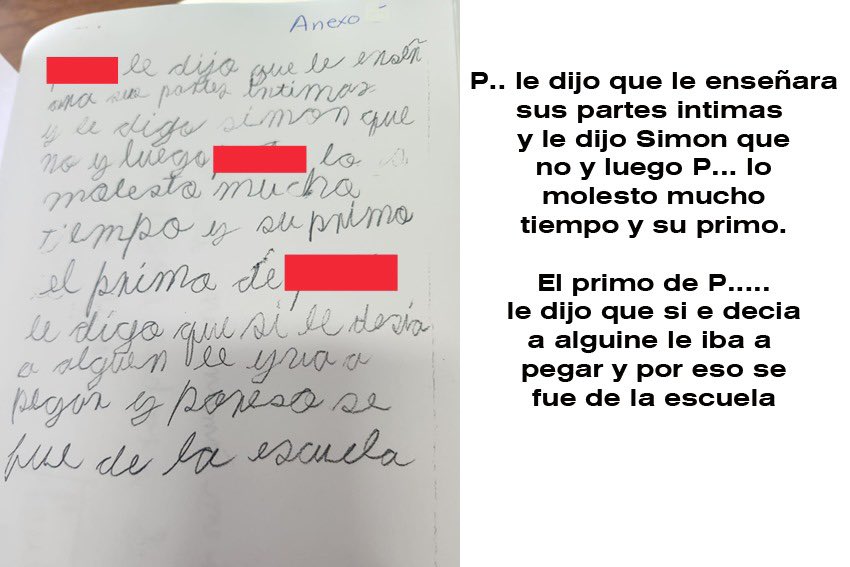 Anexo
le dijo que le enseñ
ara sus partes intimas
y le digo simon que
no y luego lo
molesto mucho
tiempo y su primo
el primo de
le digo que si le desia
a alguen le yva a
pegar y poreso se
fue de la escuela
P.. le dijo que le enseñara
sus partes intimas
y le dijo Simon que
no y luego P... lo
molesto mucho
tiempo y su primo.
El primo de P.....
le dijo que si e decia
a alguine le iba a
pegar y por eso se
fue de la escuela